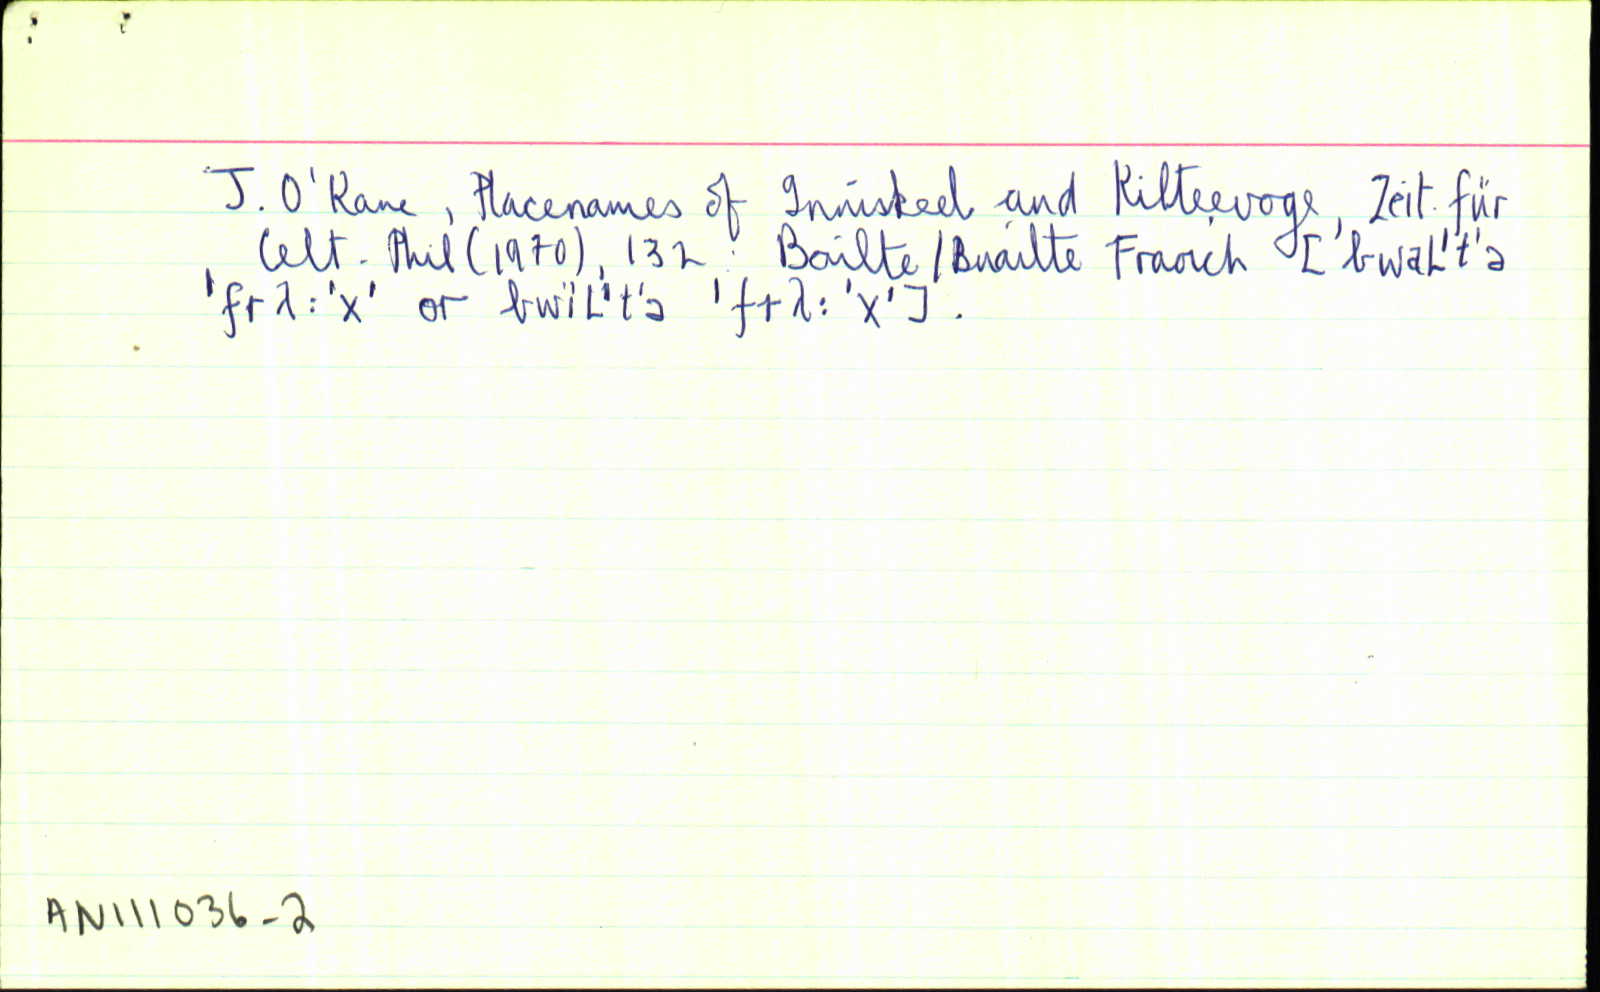 J. O'Kane, Placenames of Inniskeel and Kilteevoge, Zeit. für
Celt. Phil (1970), 132 : Bailte/Buailte Fraoich ['bwaL't'ə
'frλ:'x' or bwïL't'ə 'frλ:'x'].
AN111036-2